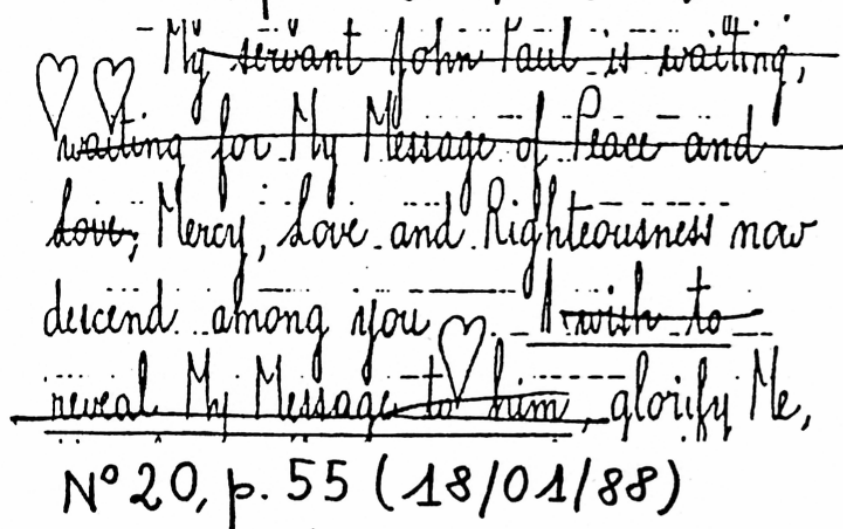 - My servant John Paul is waiting,
waiting for My Message of Peace and
Love, Mercy, Love and Righteousness now
descend among you - I wish to
reveal My Message to him, glorify Me,
N° 20, p. 55 (18/01/88)